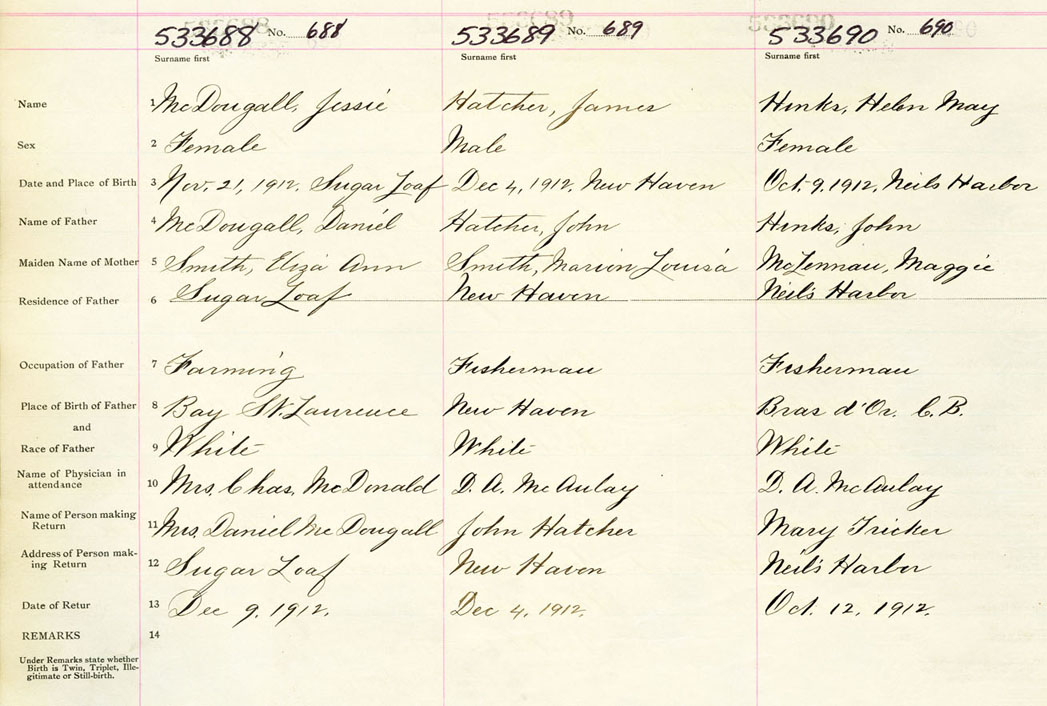 533688 No. 688 533689 No. 689 533690 No. 690
Surname first Surname first Surname first
Name 1 McDougall, Jessie Hatcher, James Hinks, Helen May
Sex 2 Female Male Female
Date and Place of Birth 3 Nov. 21, 1912. Sugar Loaf Dec 4, 1912, New Haven Oct. 9, 1912, Neils Harbor
Name of Father 4 McDougall, Daniel Hatcher, John Hinks, John
Maiden Name of Mother 5 Smith, Eliza Ann Smith, Marion Louisa McLennan, Maggie
Residence of Father 6 Sugar Loaf New Haven Neil's Harbor
Occupation of Father 7 Farming Fisherman Fisherman
Place of Birth of Father 8 Bay St. Laurence New Haven Bras d'Or, C.B.
and
Race of Father 9 White White White
Name of Physician in
attendance 10 Mrs. Chas, McDonald D. A. McAulay D. A. McAulay
Name of Person making
Return 11 Mrs. Daniel McDougall John Hatcher Mary Tricker
Address of Person mak-
ing Return 12 Sugar Loaf New Haven Neil's Harbor
Date of Retur 13 Dec 9, 1912. Dec 4, 1912. Oct. 12, 1912.
REMARKS 14
Under Remarks state whether
Birth is Twin, Triplet, Ille-
gitimate or Still-birth.